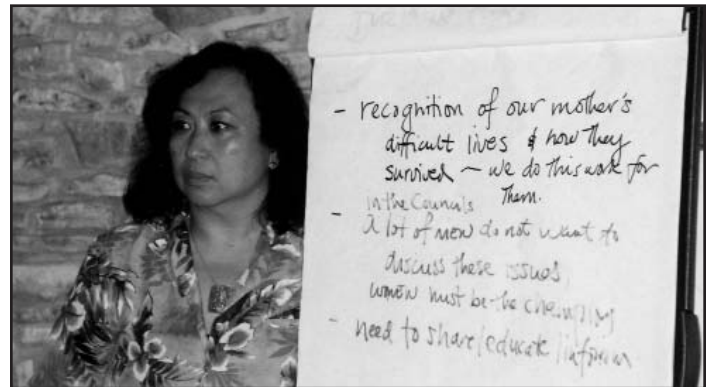 - recognition of our mother's
difficult lives & how they
survived - we do this work for
them.
in the Councils
- A lot of men do not want to
discuss these issues,
women must be the champions
- need to share/educate/inform